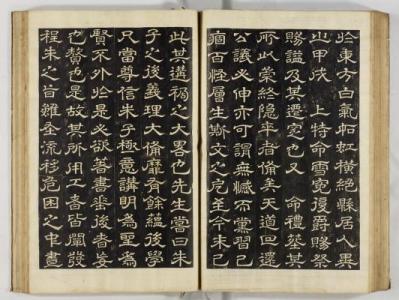 於東方白氣如虹橫絶縣居人異
之甲戌 上特命雪冤復爵賜祭
賜諡及其遷窆也又 命禮葬其
所以崇終隱卒者備矣天道回還
公議必伸亦可謂無憾而黨習已
痼百怪層生斯文之厄至今未已
此其遘禍之大畧也先生嘗曰朱
子之後義理大備靡有餘蘊後學
只當尊信朱子極意講明爲聖爲
賢不外於是必欲著書垂後者妄
也贅也是故其所用工者皆闡發
程朱之旨雖至流移危困之中晝